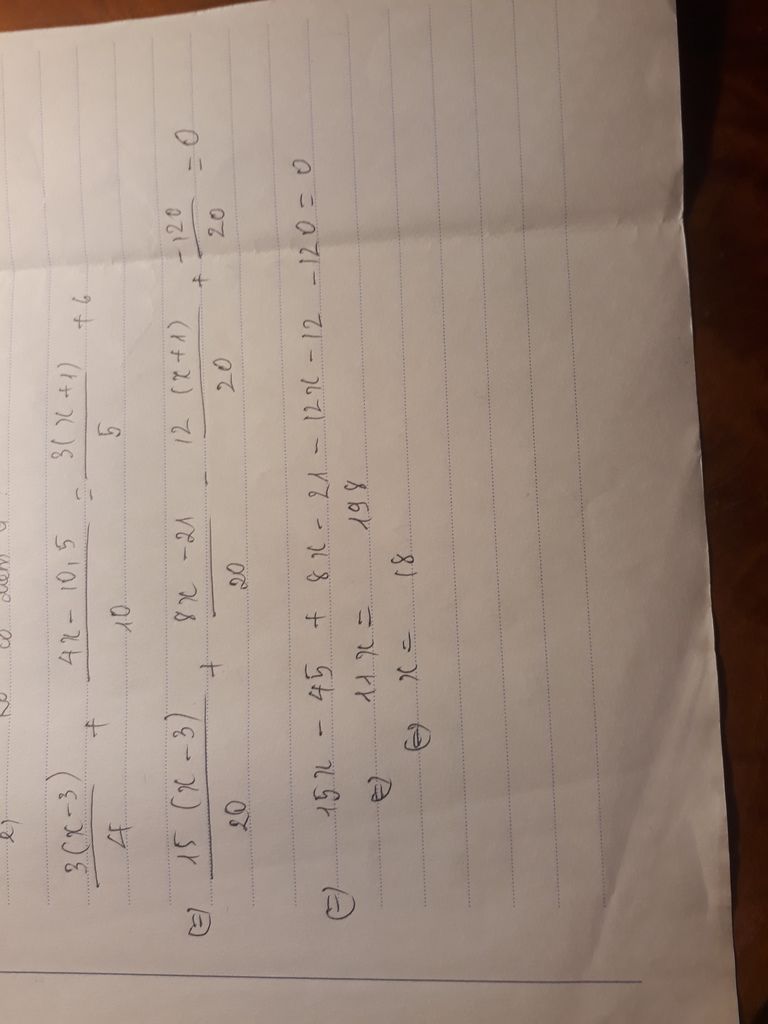 e)
3(x-3)/4 + 4x-10,5/10 = 3(x+1)/5 + 6
(=) 15(x-3)/20 + 8x-21/20 - 12(x+1)/20 + -120/20 = 0
(=) 15x - 45 + 8x - 21 - 12x - 12 - 120 = 0
(=) 11x = 198
(=) x = 18